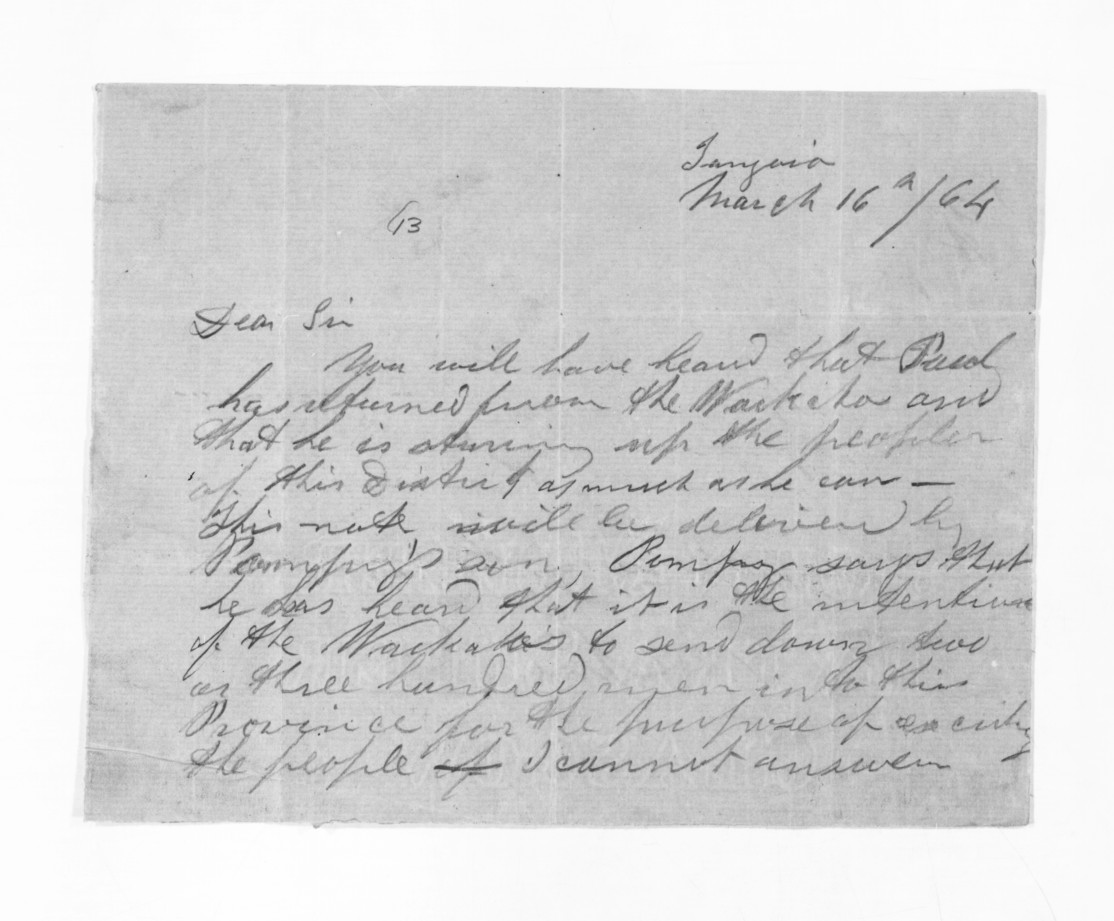 Tangoio
March 16th/64
13
Dear Sir
You will have heard that Paul
has returned from the Wackatos and
that he is stirring up the peopler
of this District as much as he can —
This note will be deliverd by
Pompey's son, Pompey says that
he has heard that it is the intentions
of the Wackatos to send down two
or three hundred men into this
Province for the purpose of exciting
the people of I cannot answer